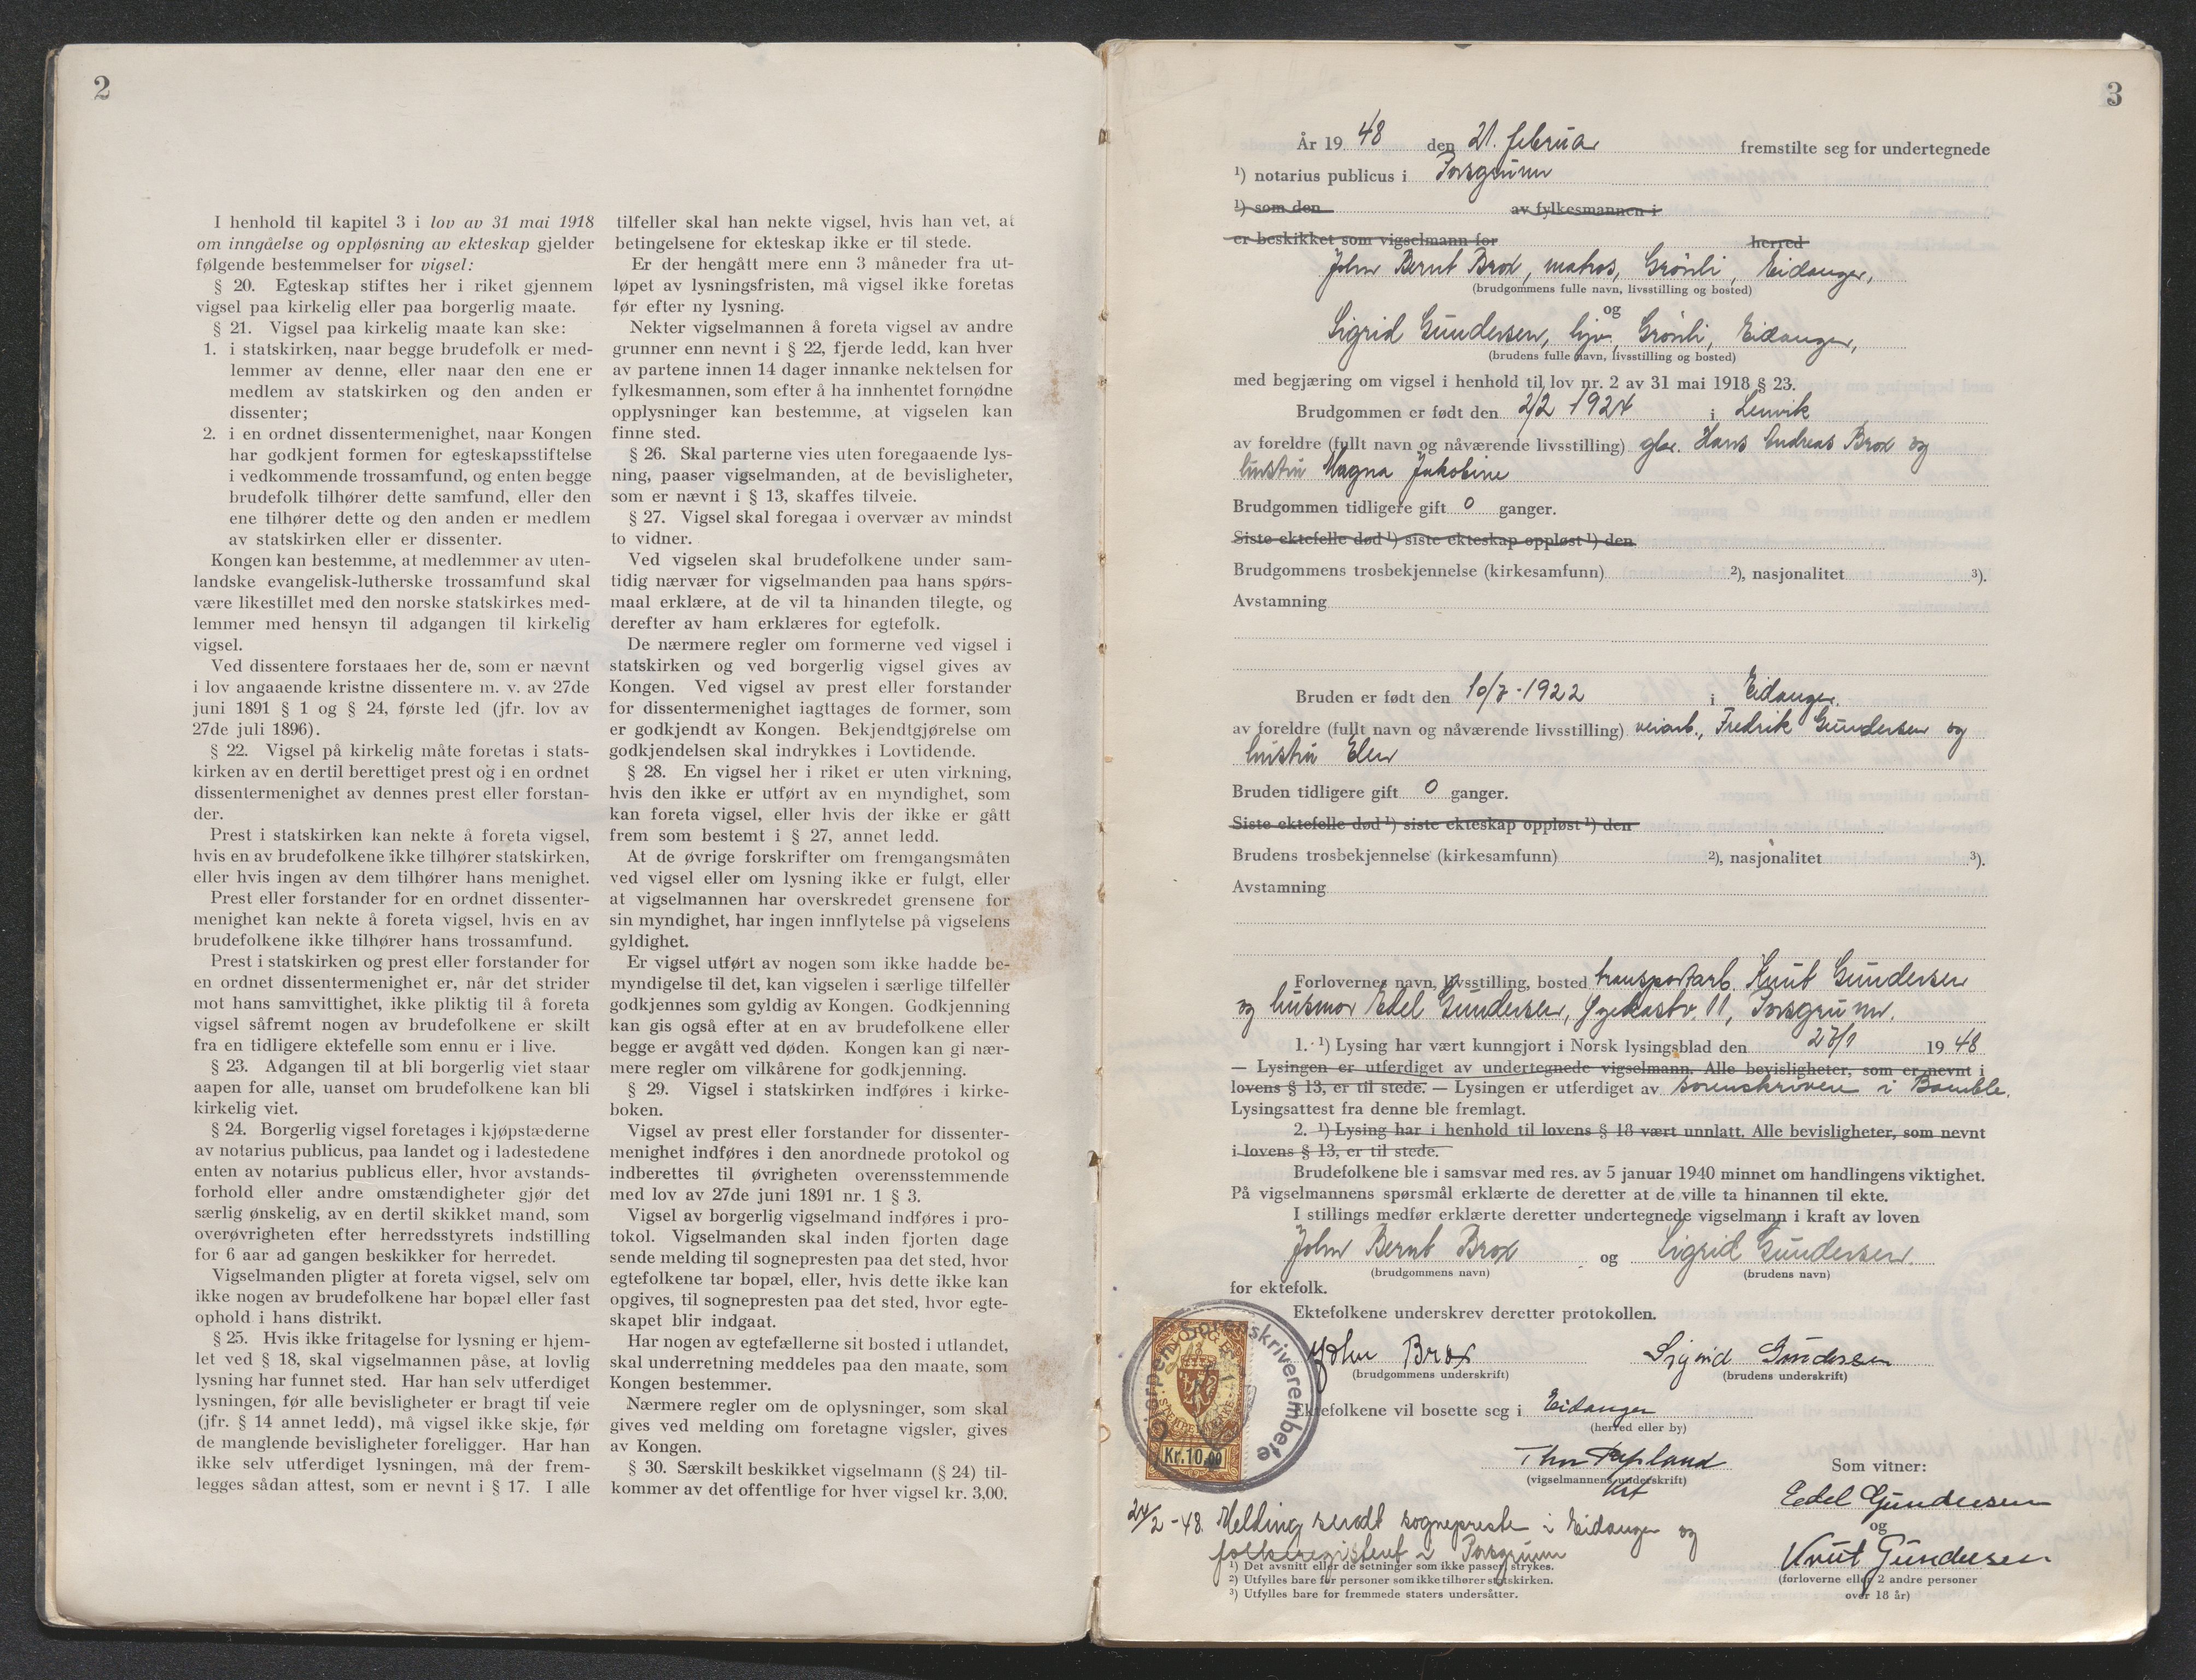 2
I henhold til kapitel 3 i lov av 31 mai 1918
om inngåelse og oppløsning av ekteskap gjelder
følgende bestemmelser for vigsel:
§ 20. Egteskap stiftes her i riket gjennem
vigsel paa kirkelig eller paa borgerlig maate.
§ 21. Vigsel paa kirkelig maate kan ske:
1. i statskirken, naar begge brudefolk er med-
lemmer av denne, eller naar den ene er
medlem av statskirken og den anden er
dissenter;
2. i en ordnet dissentermenighet, naar Kongen
har godkjent formen for egteskapsstiftelse
i vedkommende trossamfund, og enten begge
brudefolk tilhører dette samfund, eller den
ene tilhører dette og den anden er medlem
av statskirken eller er dissenter.
Kongen kan bestemme, at medlemmer av uten-
landske evangelisk-lutherske trossamfund skal
være likestillet med den norske statskirkes med-
lemmer med hensyn til adgangen til kirkelig
vigsel.
Ved dissentere forstaaes her de, som er nævnt
i lov angaaende kristne dissentere m. v. av 27de
juni 1891 § 1 og § 24, første led (jfr. lov av
27de juli 1896).
§ 22. Vigsel på kirkelig måte foretas i stats-
kirken av en dertil berettiget prest og i en ordnet
dissentermenighet av dennes prest eller forstan-
der.
Prest i statskirken kan nekte å foreta vigsel,
hvis en av brudefolkene ikke tilhører statskirken,
eller hvis ingen av dem tilhører hans menighet.
Prest eller forstander for en ordnet dissenter-
menighet kan nekte å foreta vigsel, hvis en av
brudefolkene ikke tilhører hans trossamfund.
Prest i statskirken og prest eller forstander for
en ordnet dissentermenighet er, når det strider
mot hans samvittighet, ikke pliktig til å foreta
vigsel såfremt nogen av brudefolkene er skilt
fra en tidligere ektefelle som ennu er i live.
§ 23. Adgangen til at bli borgerlig viet staar
aapen for alle, uanset om brudefolkene kan bli
kirkelig viet.
§ 24. Borgerlig vigsel foretages i kjøpstæderne
av notarius publicus, paa landet og i ladestedene
enten av notarius publicus eller, hvor avstands-
forhold eller andre omstændigheter gjør det
særlig ønskelig, av en dertil skikket mand, som
overøvrigheten efter herredsstyrets indstilling
for 6 aar ad gangen beskikker for herredet.
Vigselmanden pligter at foreta vigsel, selv om
ikke nogen av brudefolkene har bopæl eller fast
ophold i hans distrikt.
§ 25. Hvis ikke fritagelse for lysning er hjem-
let ved § 18, skal vigselmannen påse, at lovlig
lysning har funnet sted. Har han selv utferdiget
lysningen, før alle bevisligheter er bragt til veie
(jfr. § 14 annet ledd), må vigsel ikke skje, før
de manglende bevisligheter foreligger. Har han
ikke selv utferdiget lysningen, må der frem-
legges sådan attest, som er nevnt i § 17. I alle
tilfeller skal han nekte vigsel, hvis han vet, at
betingelsene for ekteskap ikke er til stede.
Er der hengått mere enn 3 måneder fra ut-
løpet av lysningsfristen, må vigsel ikke foretas
før efter ny lysning.
Nekter vigselmannen å foreta vigsel av andre
grunner enn nevnt i § 22, fjerde ledd, kan hver
av partene innen 14 dager innanke nektelsen for
fylkesmannen, som efter å ha innhentet fornødne
opplysninger kan bestemme, at vigselen kan
finne sted.
§ 26. Skal parterne vies uten foregaaende lys-
ning, paaser vigselmanden, at de bevisligheter,
som er nævnt i § 13, skaffes tilveie.
§ 27. Vigsel skal foregaa i overvær av mindst
to vidner.
Ved vigselen skal brudefolkene under sam-
tidig nærvær for vigselmanden paa hans spørs-
maal erklære, at de vil ta hinanden tilegte, og
derefter av ham erklæres for egtefolk.
De nærmere regler om formerne ved vigsel i
statskirken og ved borgerlig vigsel gives av
Kongen. Ved vigsel av prest eller forstander
for dissentermenighet iagttages de former, som
er godkjendt av Kongen. Bekjendtgjørelse om
godkjendelsen skal indrykkes i Lovtidende.
§ 28. En vigsel her i riket er uten virkning,
hvis den ikke er utført av en myndighet, som
kan foreta vigsel, eller hvis der ikke er gått
frem som bestemt i § 27, annet ledd.
At de øvrige forskrifter om fremgangsmåten
ved vigsel eller om lysning ikke er fulgt, eller
at vigselmannen har overskredet grensene for
sin myndighet, har ingen innflytelse på vigselens
gyldighet.
Er vigsel utført av nogen som ikke hadde be-
myndigelse til det, kan vigselen i særlige tilfeller
godkjennes som gyldig av Kongen. Godkjenning
kan gis også efter at en av brudefolkene eller
begge er avgått ved døden. Kongen kan gi nær-
mere regler om vilkårene for godkjenning.
§ 29. Vigsel i statskirken indføres i kirke-
boken.
Vigsel av prest eller forstander for dissenter-
menighet indføres i den anordnede protokol og
indberettes til øvrigheten overensstemmende
med lov av 27de juni 1891 nr. 1 § 3.
Vigsel av borgerlig vigselmand indføres i pro-
tokol. Vigselmanden skal inden fjorten dage
sende melding til sognepresten paa det sted, hvor
egtefolkene tar bopæl, eller, hvis dette ikke kan
opgives, til sognepresten paa det sted, hvor egte-
skapet blir indgaat.
Har nogen av egtefællerne sit bosted i utlandet,
skal underretning meddeles paa den maate, som
Kongen bestemmer.
Nærmere regler om de oplysninger, som skal
gives ved melding om foretagne vigsler, gives
av Kongen.
§ 30. Særskilt beskikket vigselmann (§ 24) til-
kommer av det offentlige for hver vigsel kr. 3,00.
3
År 19 48 den 21. februar fremstilte seg for undertegnede
¹) notarius publicus i Porsgrunn
¹) som den av fylkesmannen i
er beskikket som vigselmann for herred
John Bernt Brox, matros, Grönli, Eidanger,
(brudgommens fulle navn, livsstilling og bosted)
og
Sigrid Gundersen, hjv., Grönli, Eidanger,
(brudens fulle navn, livsstilling og bosted)
med begjæring om vigsel i henhold til lov nr. 2 av 31 mai 1918 § 23.
Brudgommen er født den 2/2 1924 i Lenvik
av foreldre (fullt navn og nåværende livsstilling) Hans Andreas Brox og
hustru Magna Jakobine
Brudgommen tidligere gift 0 ganger.
Siste ektefelle død ¹) siste ekteskap oppløst ¹) den
Brudgommens trosbekjennelse (kirkesamfunn) ²), nasjonalitet ³).
Avstamning
Bruden er født den 10/7-1922 i Eidanger.
av foreldre (fullt navn og nåværende livsstilling) veiarb., Fredrik Gundersen og
hustru Elen
Bruden tidligere gift 0 ganger.
Siste ektefelle død ¹) siste ekteskap oppløst ¹) den
Brudens trosbekjennelse (kirkesamfunn) ²), nasjonalitet ³).
Avstamning
Forlovernes navn, livsstilling, bosted transportarb. Knut Gundersen
og husmor Edel Gundersen, 11, Porsgrunn.
1. ¹) Lysing har vært kunngjort i Norsk lysingsblad den 27/1 19 48
— Lysingen er utferdiget av undertegnede vigselmann. Alle bevisligheter, som er nevnt i
lovens § 13, er til stede. — Lysingen er utferdiget av sorenskriveren i Bamble.
Lysingsattest fra denne ble fremlagt.
2. ¹) Lysing har i henhold til lovens § 18 vært unnlatt. Alle bevisligheter, som nevnt
i lovens § 13, er til stede.
Brudefolkene ble i samsvar med res. av 5 januar 1940 minnet om handlingens viktighet.
På vigselmannens spørsmål erklærte de deretter at de ville ta hinannen til ekte.
I stillings medfør erklærte deretter undertegnede vigselmann i kraft av loven
John Bernt Brox og Sigrid Gundersen.
(brudgommens navn) (brudens navn)
for ektefolk.
Ektefolkene underskrev deretter protokollen.
John Brox Sigrid Gundersen
(brudgommens underskrift) (brudens underskrift)
Ektefolkene vil bosette seg i Eidanger
(herred eller by)
Sorenskriverembete
Kr.10.00
Thor
(vigselmannens underskrift)
Som vitner:
Eedel Gundersen
og
Knut Gundersen
(forloverne eller 2 andre personer
over 18 år)
24/2-48. Melding sendt sognepresten i Eidanger og
folkeregisteret i Porsgrunn
¹) Det avsnitt eller de setninger som ikke passer, strykes.
²) Utfylles bare for personer som ikke tilhører statskirken.
³) Utfylles bare for fremmede staters undersåtter.